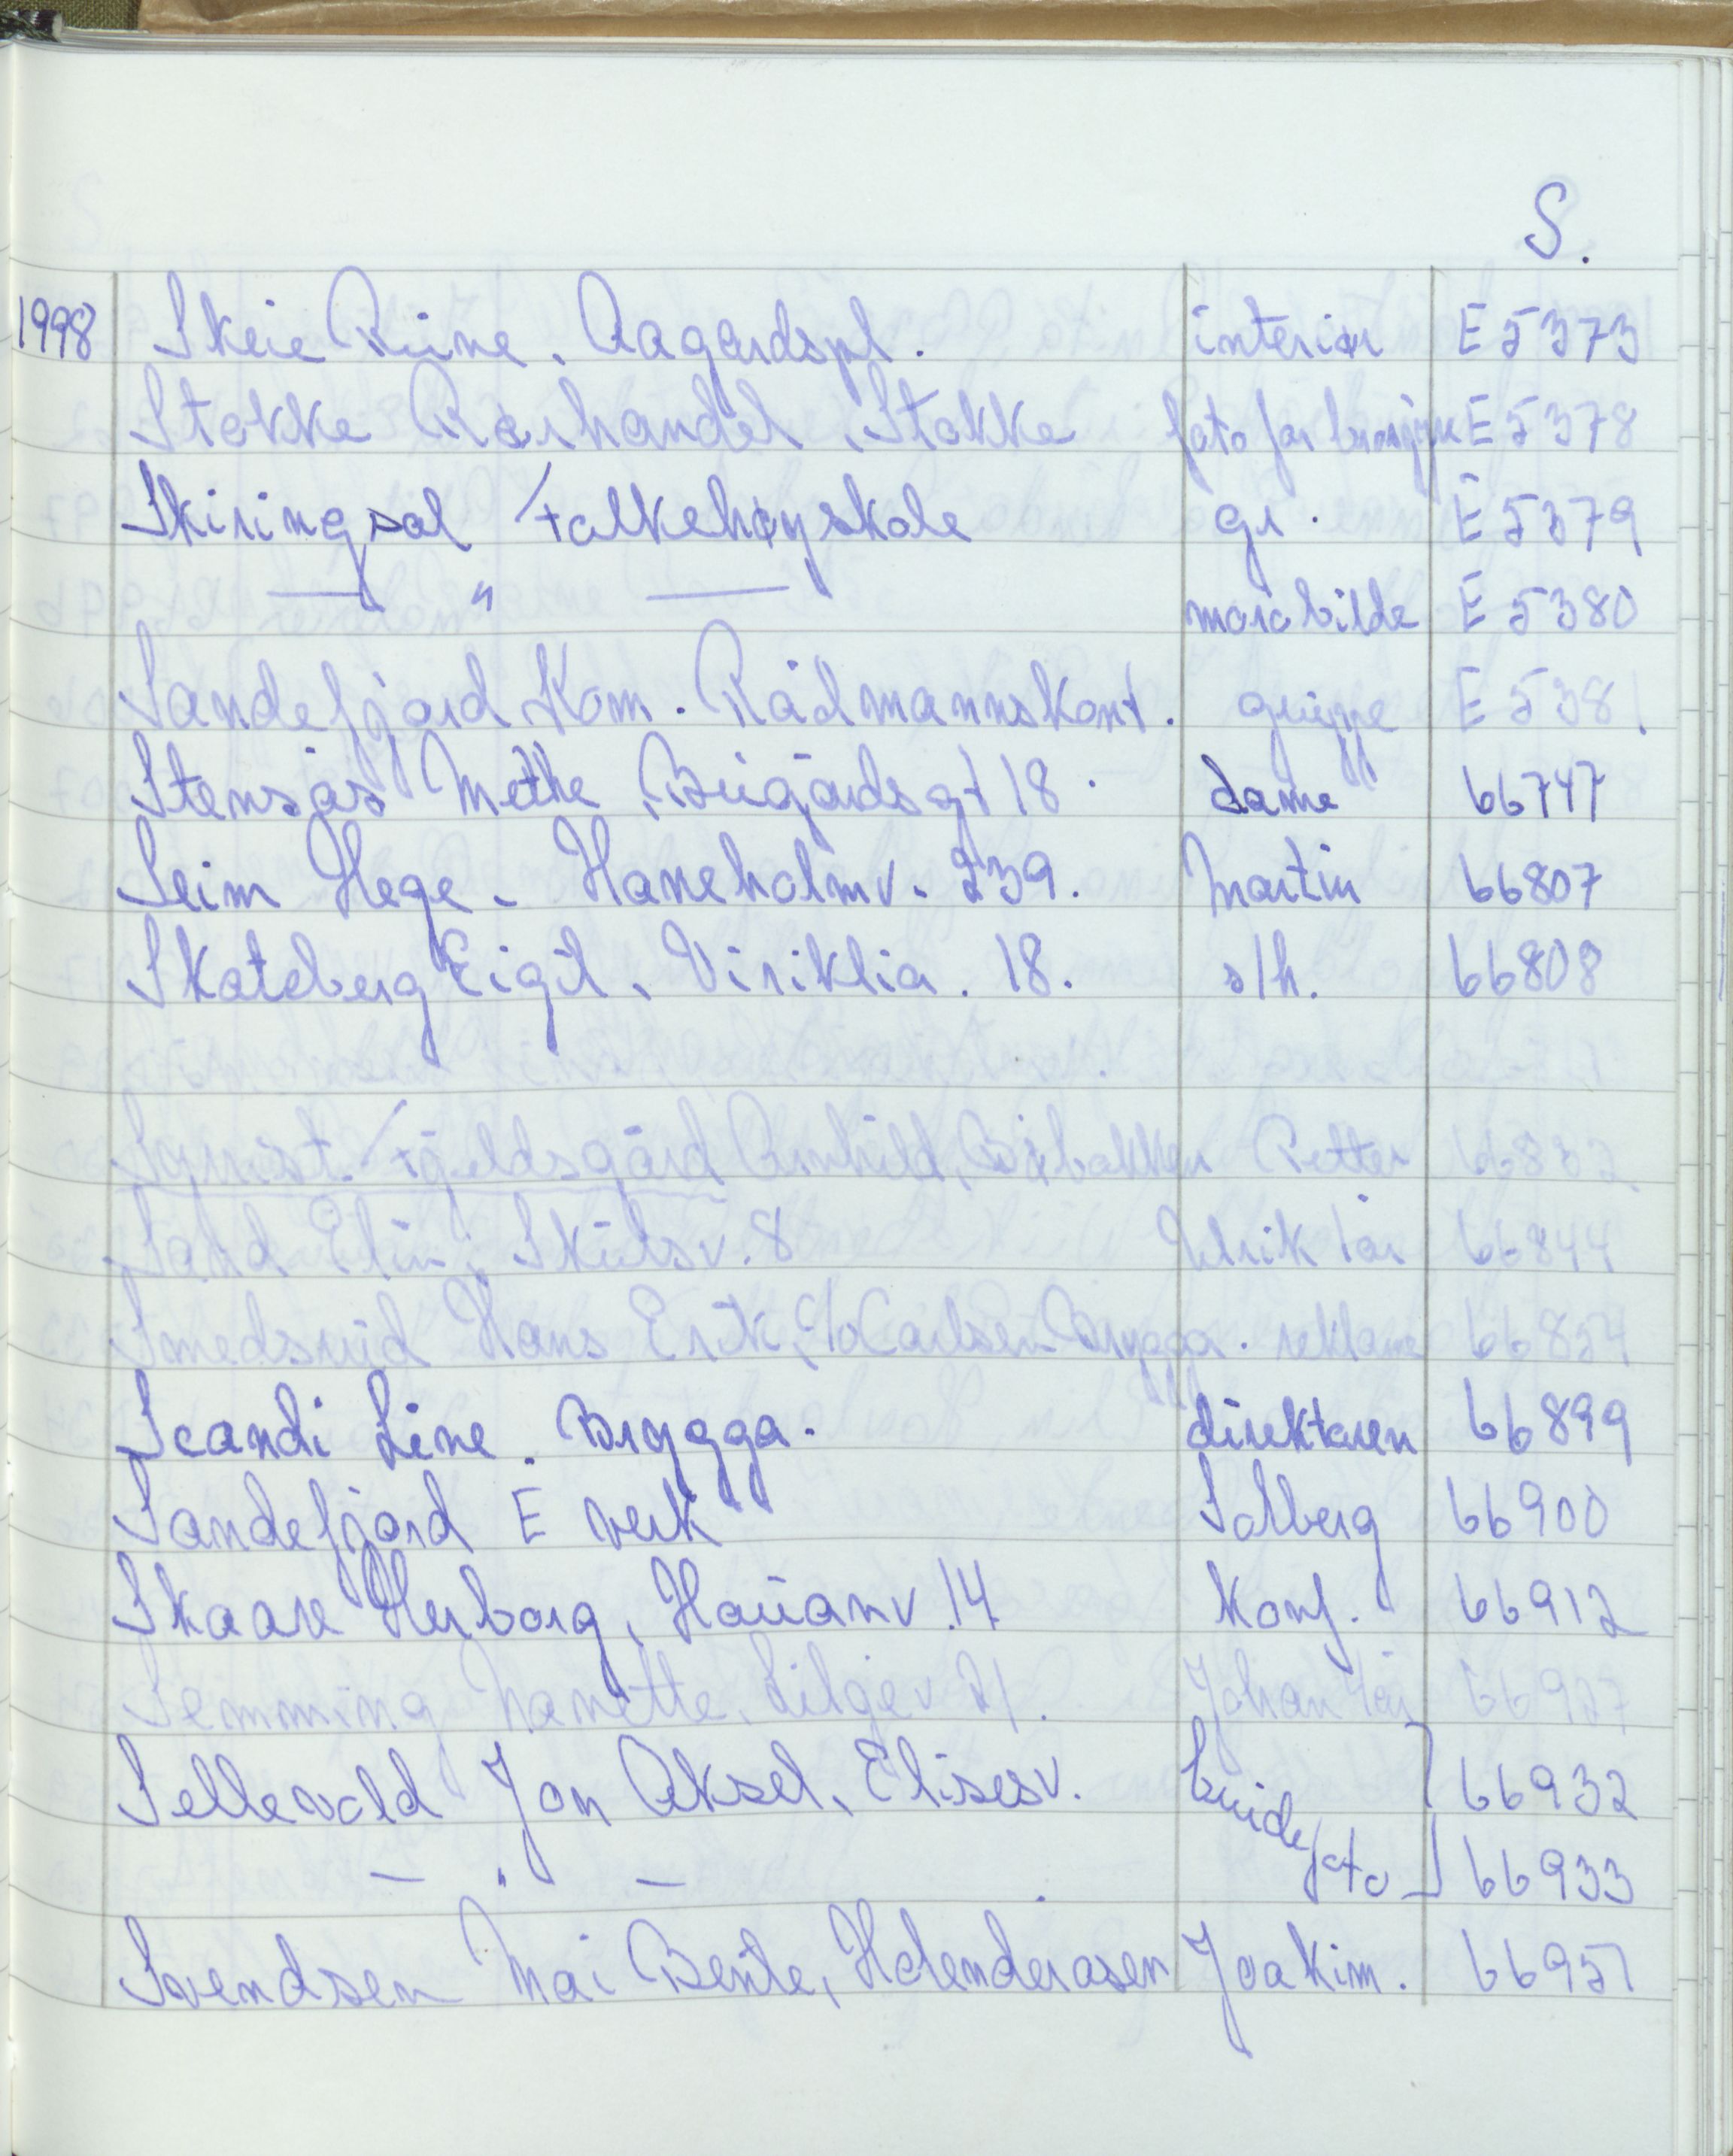 S.
1998 Skeie Rune. Aagaardspl. interiør E 5373
Stokke Rørhandel, Stokke foto for brosjyre E 5378
Skiringsal Folkehøyskole gr. E 5379
— " — morobilde E 5380
Sandefjord Kom. Rådmannskont. gruppe E 5381
Stensås Mette, Bugårdsgt 18. dame 66747
Seim Hege. Haneholmv. 239. Martin 66807
Skateberg Eigil. Viriklia. 18. s/h. 66808
Fjeldsgård Arnhild, Petter 66832
Sand Elin, Skiltsv. 8 1 år 66844
Smedsrud Hans Erik, c/o Carlsen Brygga. reklame 66854
Scandi Line. Brygga. direktøren 66899
Sandefjord E verk Solberg 66900
Skaare Herborg, Hauanv. 14 konf. 66912
Semming Nanette, Liljev 21. Johan 66927
Sellevold Jan Aksel, Elisesv. brude 66932
— " — foto 66933
Svendsen Mai Bente, Holenderåsen Joakim. 66951